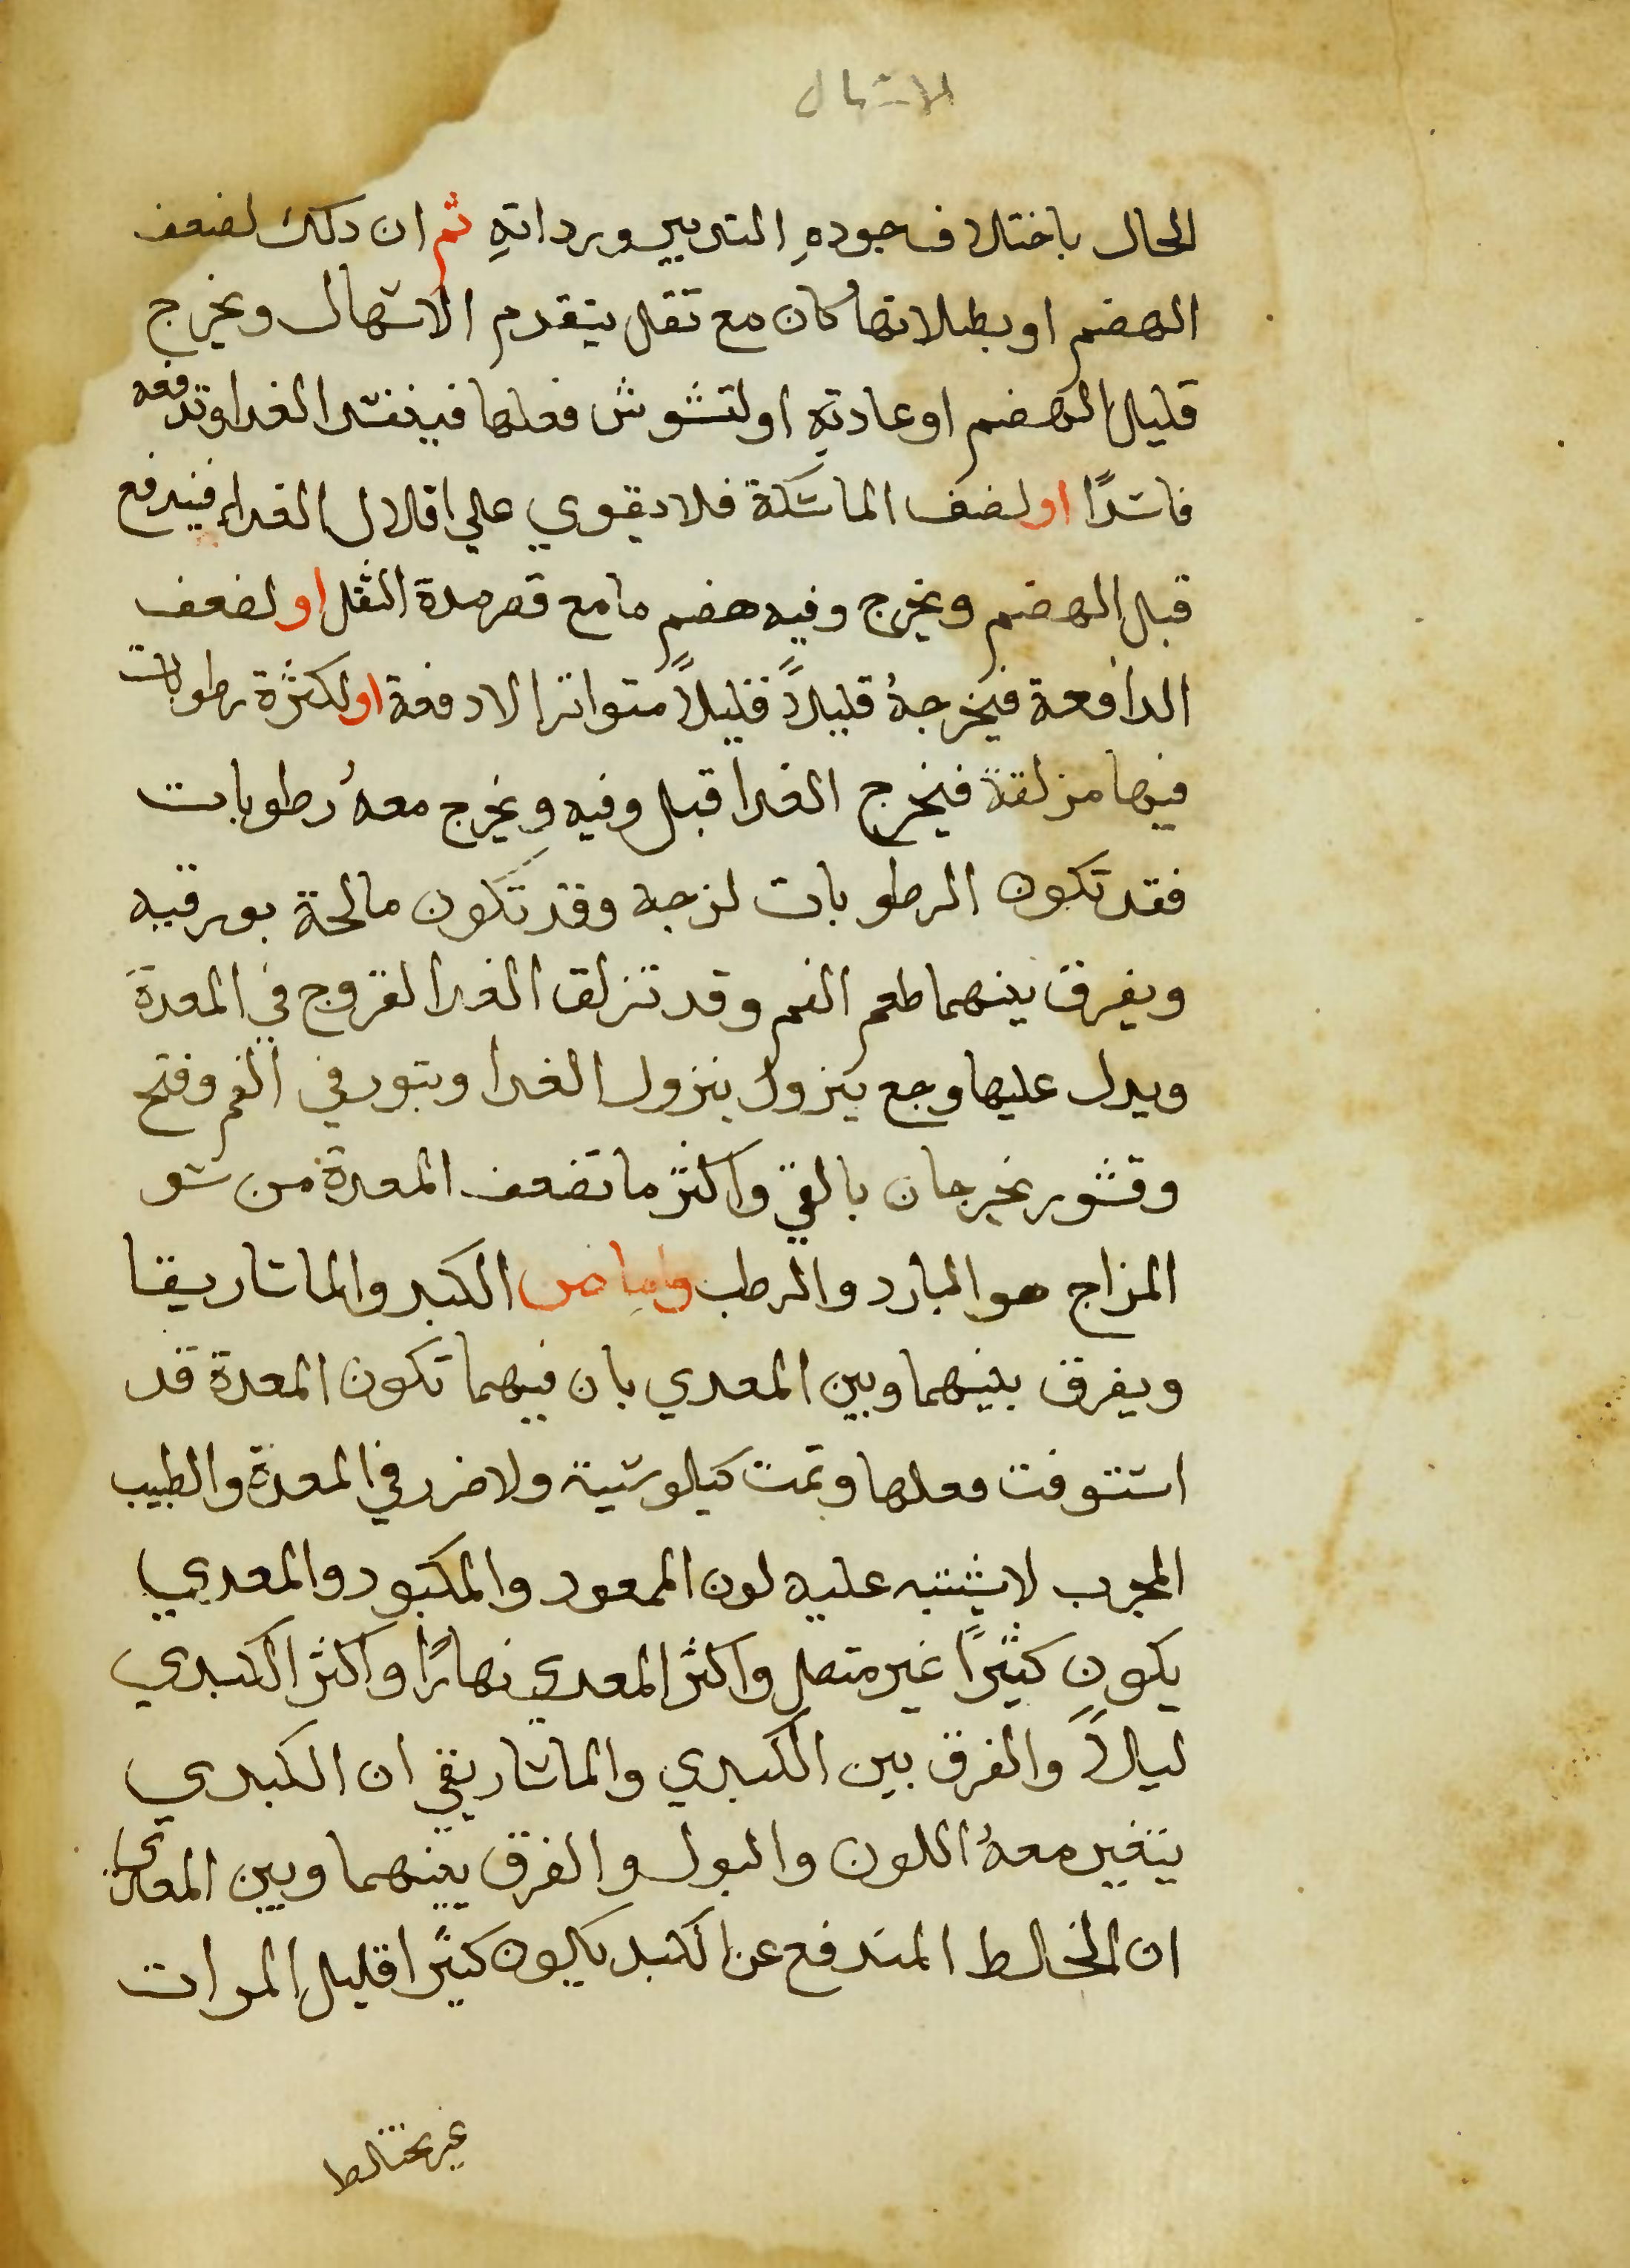 الاسهال
الحال باختلاف جوده التدبير ورداته ثم ان دلك لضعف
الهضم او بطلانها كان مع ثقل يتقدم الاسهال ويخرج
قليل الهضم او عادته او لتشوش فعلها فيفسد الغدا وتدفعه
فاسدًا او لضعف الماسكة فلا يقوي علي اقلال الغداء فيندفع
قبل الهضم ويخرج وفيه هضم ما مع قصر مدة الثقل او لضعف
الدافعة فيخرجهُ قليلاً قليلاً متواترا لا دفعة او لكثرة رطوبات
فيها مزلقة فيخرج الغدا قبل وفيه ويخرج معهُ رطوبات
فقد تكون الرطوبات لزجه وقد تكون مالحة بورقيه
ويفرق بينهما طعم الفم وقد تزلق الغدا لقروح في المعدة
ويدل عليها وجع يزول بنزول الغدا وبثور في الفم وقتح
وقشور يخرجان بالقي واكثر ما تضعف المعدة من سو
المزاج هو البارد والرطب واما من الكبد والماساريقا
ويفرق بينهما وبين المعدي بان فيهما تكون المعدة قد
استوفت فعلها وتمت كيلوسية ولا ضرر في المعدة والطبيب
المجرب لا يشتبه عليه لون الممعود والمكبود والمعدي
يكون كثيرًا غير متصل واكثر المعدي نهارًا واكثر الكبدي
ليلاً والفرق بين الكبدي والماساريقي ان الكبدي
يتغير معهُ اللون والبول والفرق بينهما وبين المعائي
ان الخالط المندفع عن الكبد يكون كثيرا قليل المرات
غير مختلط